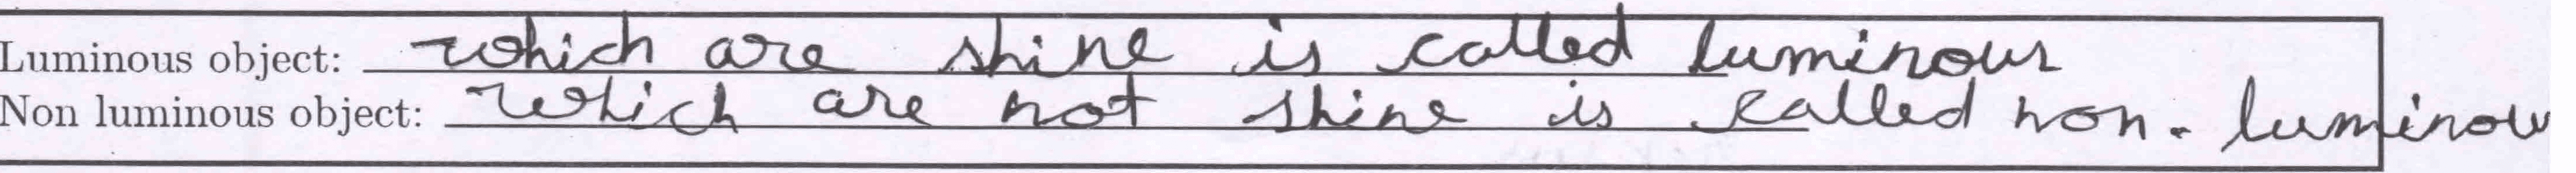 Luminous object: which are shine is called luminous
Non luminous object: which are not shine is called non-luminous